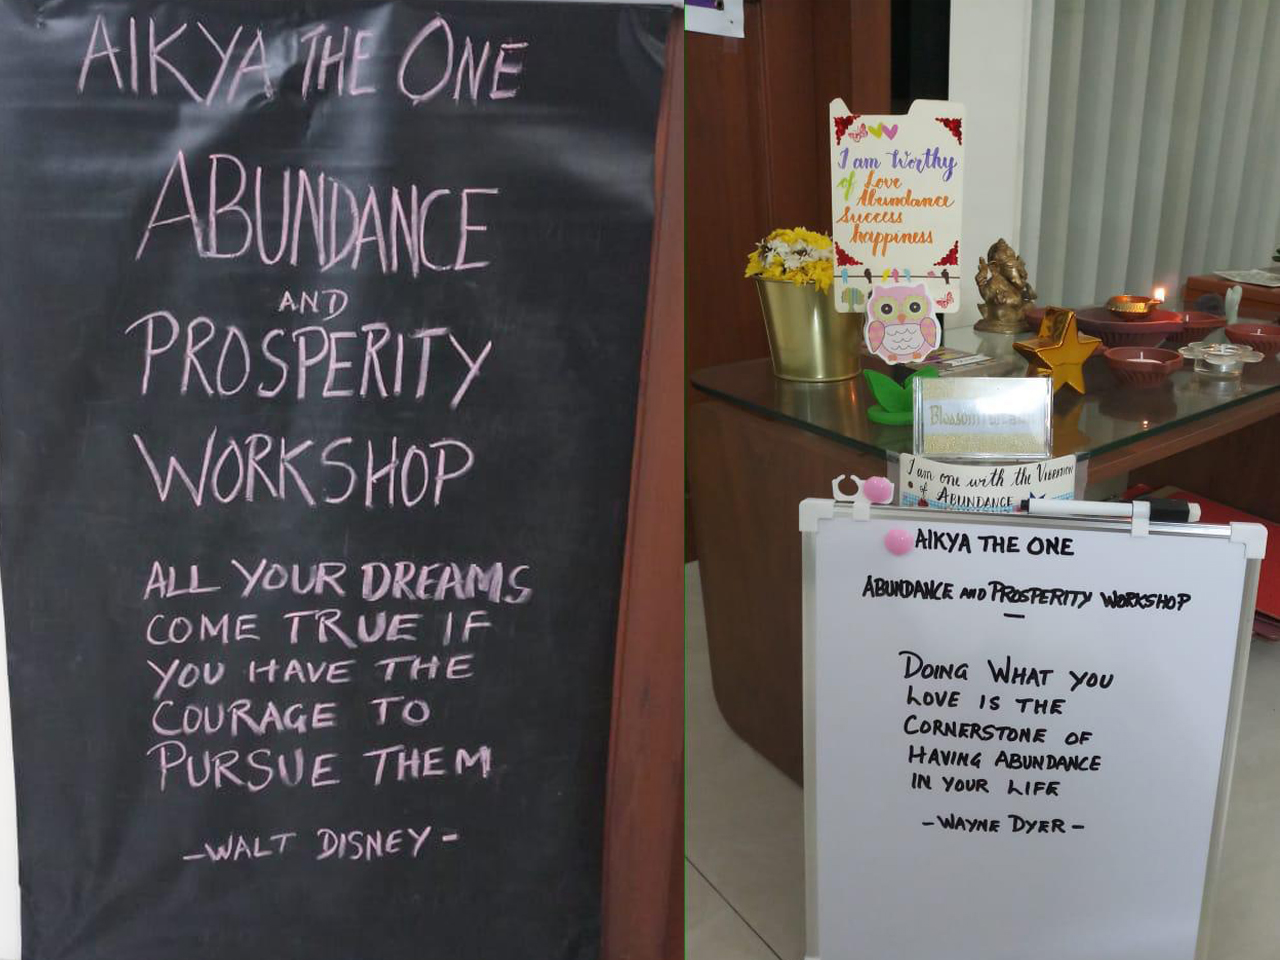 AIKYA THE ONE
ABUNDANCE
AND
PROSPERITY
WORKSHOP
ALL YOUR DREAMS
COME TRUE IF
YOU HAVE THE
COURAGE TO
PURSUE THEM
-WALT DISNEY-
I am Worthy
of Love
Abundance
Success
happiness
Blossom
I am one with the VIBRATION
of ABUNDANCE
AIKYA THE ONE
ABUNDANCE AND PROSPERITY WORKSHOP
DOING WHAT YOU
LOVE IS THE
CORNERSTONE OF
HAVING ABUNDANCE
IN YOUR LIFE
-WAYNE DYER-